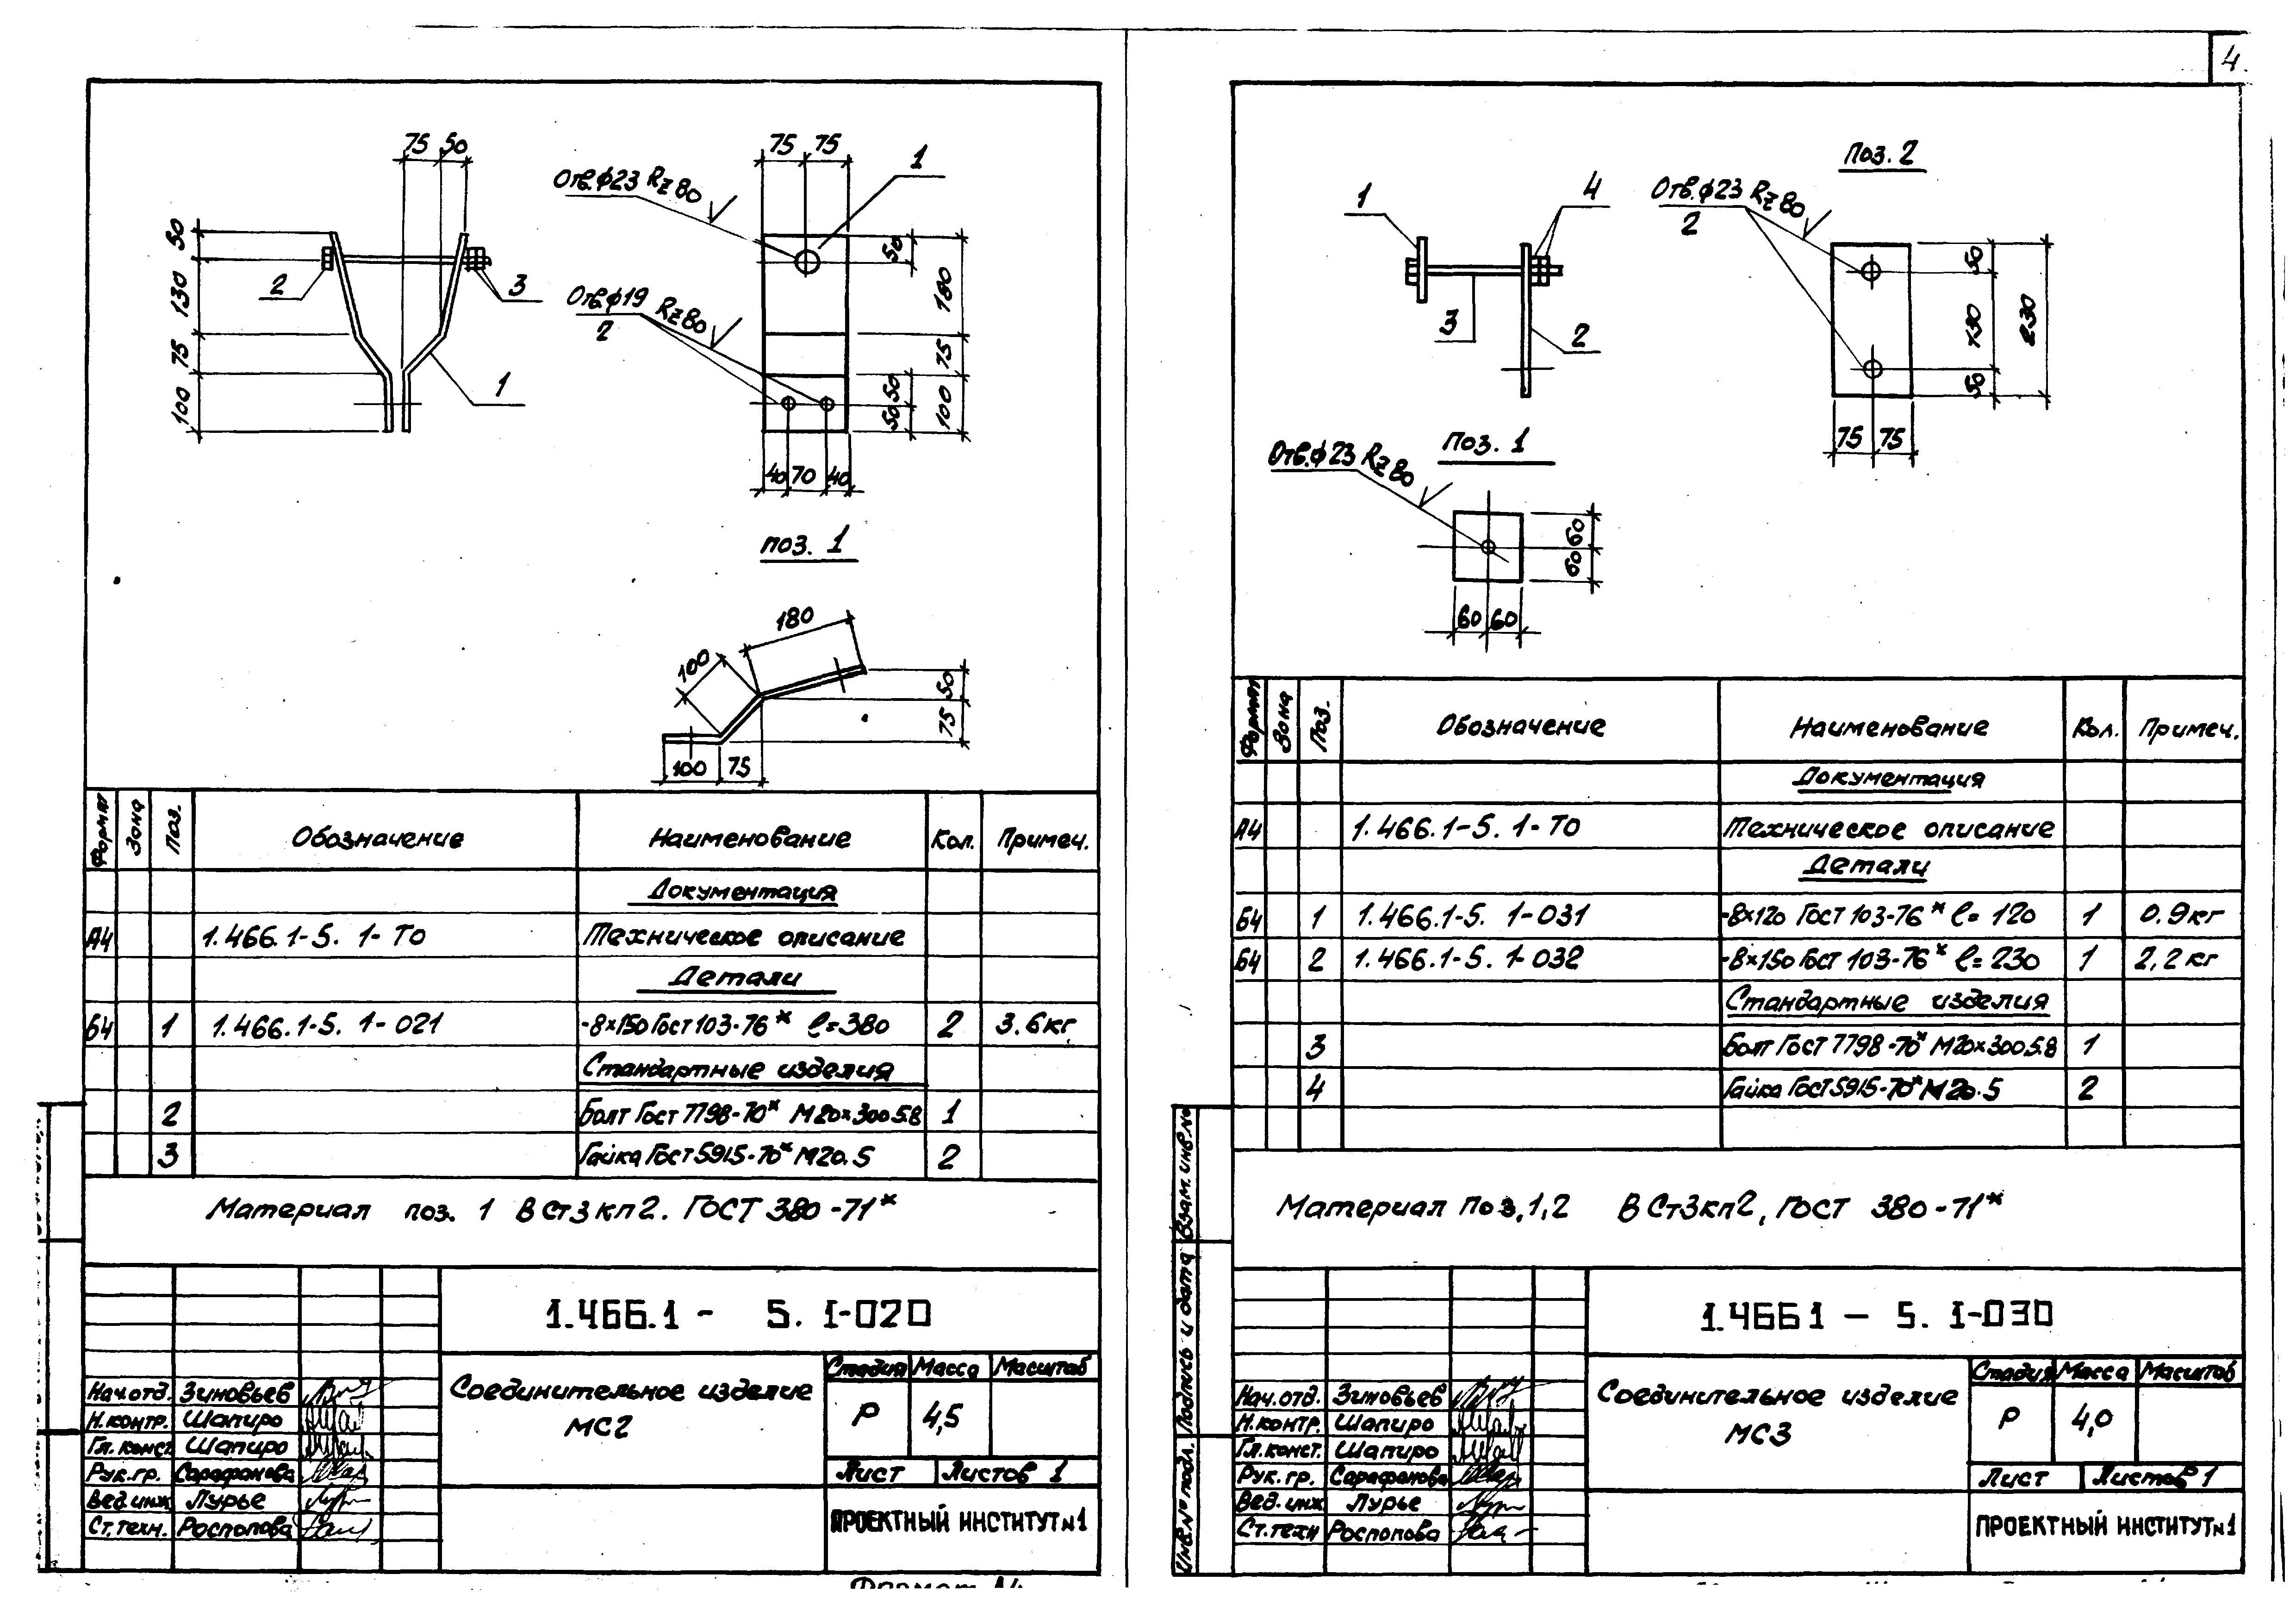 4
75 50
50
130
75
100
2
3
1
Отв.ф23 Rz80
Отв.ф19 Rz80
2
75 75
1
50
180
75
50
50
100
40 70 40
поз. 1
180
100
50
75
100 75
Формат Зона Поз. Обозначение Наименование Кол. Примеч.
Документация
А4 1.466.1-5. 1-ТО Техническое описание
Детали
Б4 1 1.466.1-5. 1-021 -8×150 Гост 103-76* ℓ=380 2 3.6кг
Стандартные изделия
2 Болт Гост 7798-70* М20×300.5.8 1
3 Гайка Гост 5915-70* М20.5 2
Материал поз. 1 ВСт3кп2. ГОСТ 380-71*
1.466.1 - 5. 1-020
Соединительное изделие
МС2
Стадия Масса Масштаб
Р 4,5
Лист Листов 1
ПРОЕКТНЫЙ ИНСТИТУТ №1
Нач.отд. Зиновьев
Н.контр. Шапиро
Гл.конст Шапиро
Рук.гр. Сарафанова
Вед.инж Лурье
Ст.техн. Роспопова
1
4
3
2
Отв.ф23 Rz80
2
Поз. 2
50
130
50
230
75 75
Отв.ф23 Rz80
Поз. 1
60
60
60 60
Формат Зона Поз. Обозначение Наименование Кол. Примеч.
Документация
А4 1.466.1-5. 1-ТО Техническое описание
Детали
Б4 1 1.466.1-5. 1-031 -8×120 Гост 103-76* ℓ= 120 1 0.9кг
Б4 2 1.466.1-5. 1-032 -8×150 Гост 103-76* ℓ= 230 1 2,2кг
Стандартные изделия
3 Болт Гост 7798-70* М20×300.5.8 1
4 Гайка Гост 5915-70* М20.5 2
Материал поз,1,2 ВСт3кп2, ГОСТ 380-71*
Взам.инв.№
Подпись и дата
Инв.№ подл.
1.466 1 - 5. 1-030
Соединительное изделие
МС3
Стадия Масса Масштаб
Р 4,0
Лист Листов 1
ПРОЕКТНЫЙ ИНСТИТУТ №1
Нач.отд. Зиновьев
Н.контр. Шапиро
Гл.конст. Шапиро
Рук.гр. Сарафанова
Вед.инж Лурье
Ст.техн Роспопова